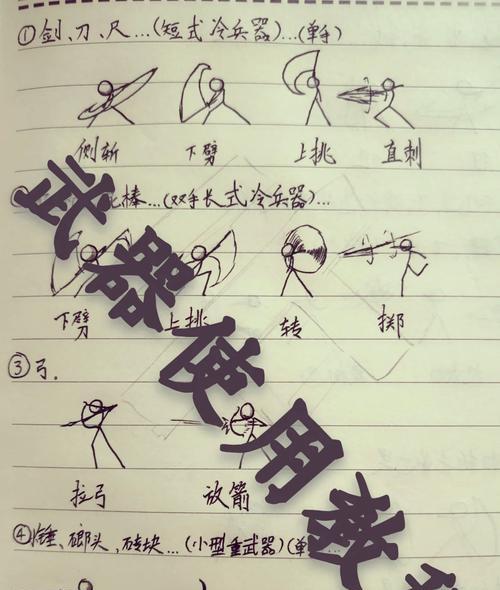 ①剑、刀、尺…(短式冷兵器)…(单手)
侧斩 下劈 上挑 直刺
棒…(双手长式冷兵器)…
下劈 上挑 转 掷
③弓.
拉弓 放箭
④锤、榔头、砖块…(小型重武器)(单
武器使用教